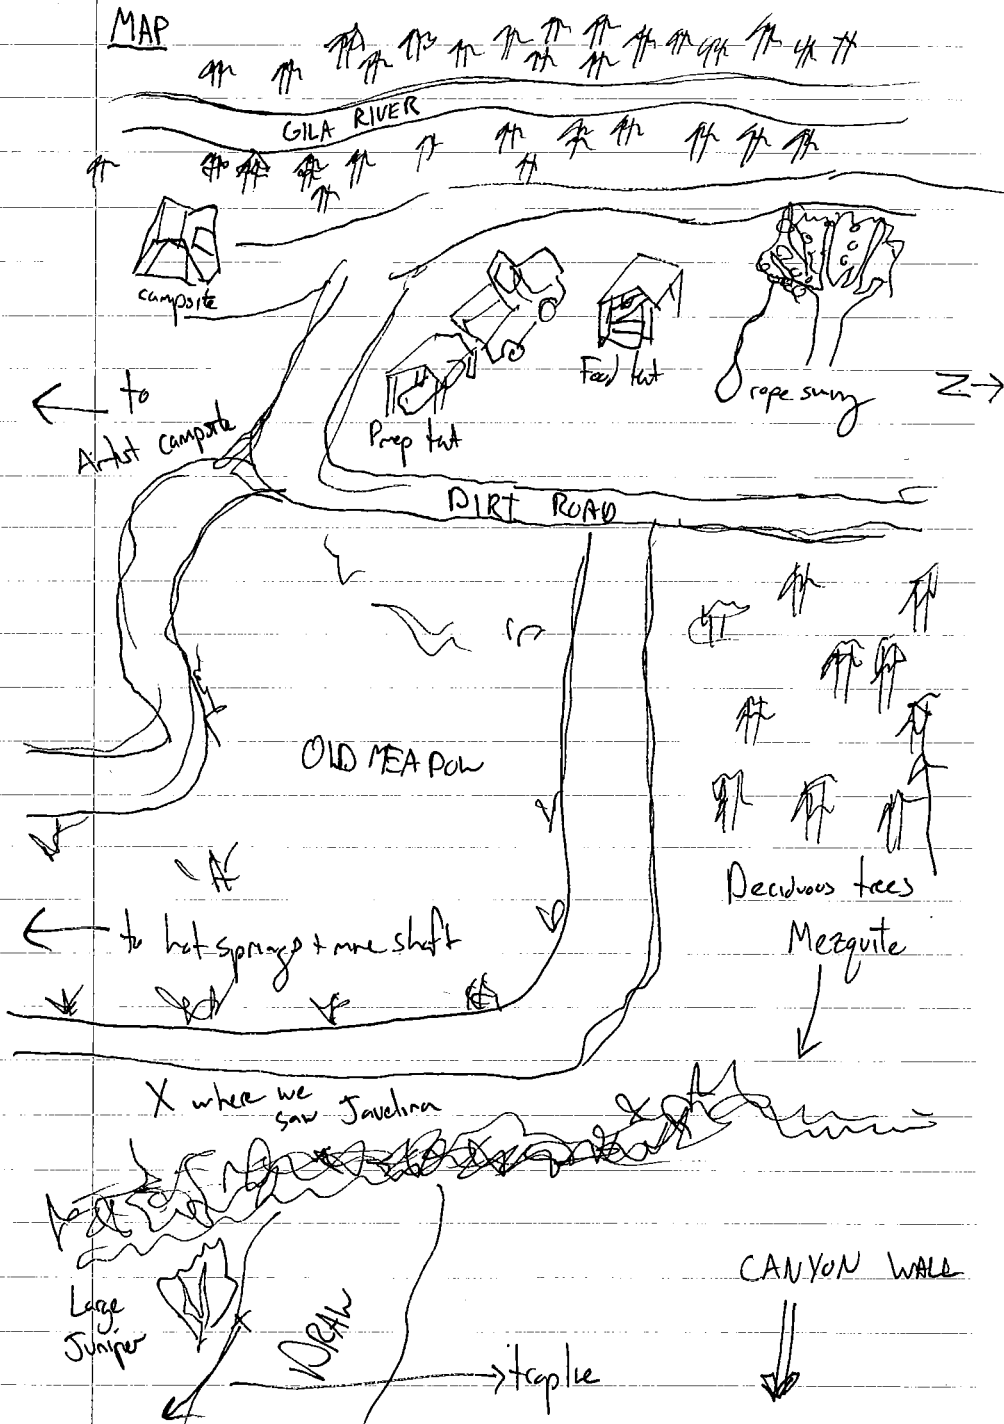 MAP
GILA RIVER
campsite
Food tent
rope swing
N
to
Artist campsite
Prep tent
DIRT ROAD
OLD MEADOW
Deciduous trees
Mezquite
to hot springs + mine shaft
X where we
saw Javelina
CANYON WALL
Large
Juniper
DRAW
trapline